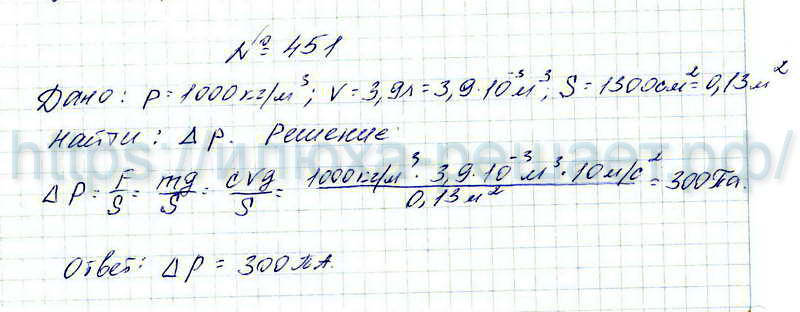 № 451
Дано: ρ = 1000 кг/м³; V = 3,9 л = 3,9·10⁻³ м³; S = 1300 см² = 0,13 м²
Найти: Δ P. Решение
https://илюха-решает.рф/
Δ P = F/S = mg/S = ρVg/S = 1000 кг/м³ · 3,9·10⁻³ м³ · 10 м/с² / 0,13 м² = 300 Па.
Ответ: Δ P = 300 ПА.